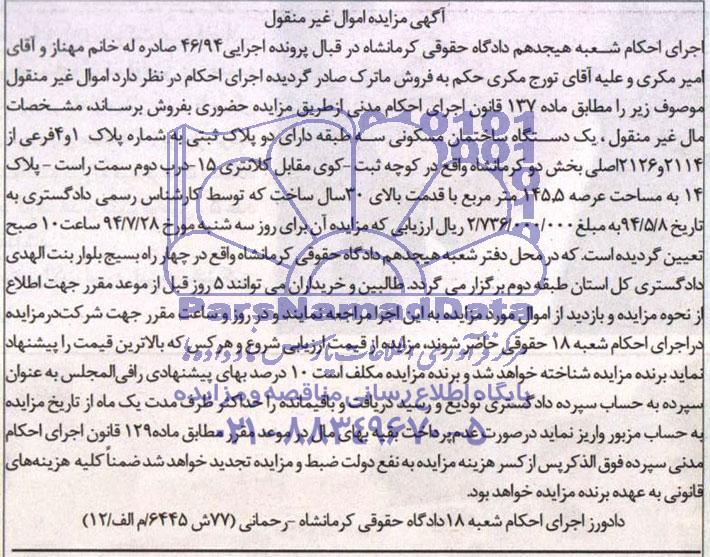 آگهی مزایده اموال غیر منقول
اجرای احکام شعبه هیجدهم دادگاه حقوقی کرمانشاه در قبال پرونده اجرایی ۴۶/۹۴ صادره له خانم مهناز و آقای
امیر مکری و علیه آقای تورج مکری حکم به فروش ماترک صادر گردیده اجرای احکام در نظر دارد اموال غیر منقول
موصوف زیر را مطابق ماده ۱۳۷ قانون اجرای احکام مدنی ازطریق مزایده حضوری بفروش برساند، مشخصات
مال غیر منقول ، یک دستگاه ساختمان مسکونی سه طبقه دارای دو پلاک ثبتی به شماره پلاک ۱و۴فرعی از
۲۱۱۴و۲۱۲۶اصلی بخش دو کرمانشاه واقع در کوچه ثبت -کوی مقابل کلانتری ۱۵-درب دوم سمت راست - پلاک
۱۴ به مساحت عرصه ۱۴۵،۵ متر مربع با قدمت بالای ۳۰سال ساخت که توسط کارشناس رسمی دادگستری به
تاریخ ۹۴/۵/۸به مبلغ ۲/۷۳۶/۰۰۰/۰۰۰ ریال ارزیابی که مزایده آن برای روز سه شنبه مورخ ۹۴/۷/۲۸ ساعت۱۰ صبح
تعیین گردیده است. که در محل دفتر شعبه هیجدهم دادگاه حقوقی کرمانشاه واقع در چهار راه بسیج بلوار بنت الهدی
دادگستری کل استان طبقه دوم برگزار می گردد. طالبین و خریداران می توانند ۵ روز قبل از موعد مقرر جهت اطلاع
از نحوه مزایده و بازدید از اموال مورد مزایده به این اجرا مراجعه نمایند و در روز وساعت مقرر جهت شرکت‌درمزایده
دراجرای احکام شعبه ۱۸ حقوقی حاضر شوند، مزایده از قیمت ارزیابی شروع و هر کس که بالاترین قیمت را پیشنهاد
نماید برنده مزایده شناخته خواهد شد و برنده مزایده مکلف است ۱۰ درصد بهای پیشنهادی رافی‌المجلس به عنوان
سپرده به حساب سپرده دادگستری تودیع و رسید دریافت و باقیمانده را حداکثر ظرف مدت یک ماه از تاریخ مزایده
به حساب مزبور واریز نماید درصورت عدم‌پرداخت بقیه بهای مال در موعد مقرر مطابق ماده۱۲۹ قانون اجرای احکام
مدنی سپرده فوق الذکر پس از کسر هزینه مزایده به نفع دولت ضبط و مزایده تجدید خواهد شد ضمناً کلیه هزینه‌های
قانونی به عهده برنده مزایده خواهد بود.
دادورز اجرای احکام شعبه ۱۸دادگاه حقوقی کرمانشاه -رحمانی (۷۷ش ۶۴۴۵/م الف/۱۲)
ParsNamadData
مرکز فرآوری اطلاعات پارس نماد داده‌ها
پایگاه اطلاع رسانی مناقصه و مزایده
۰۲۱-۸۸۳۴۹۶۷۰-۵